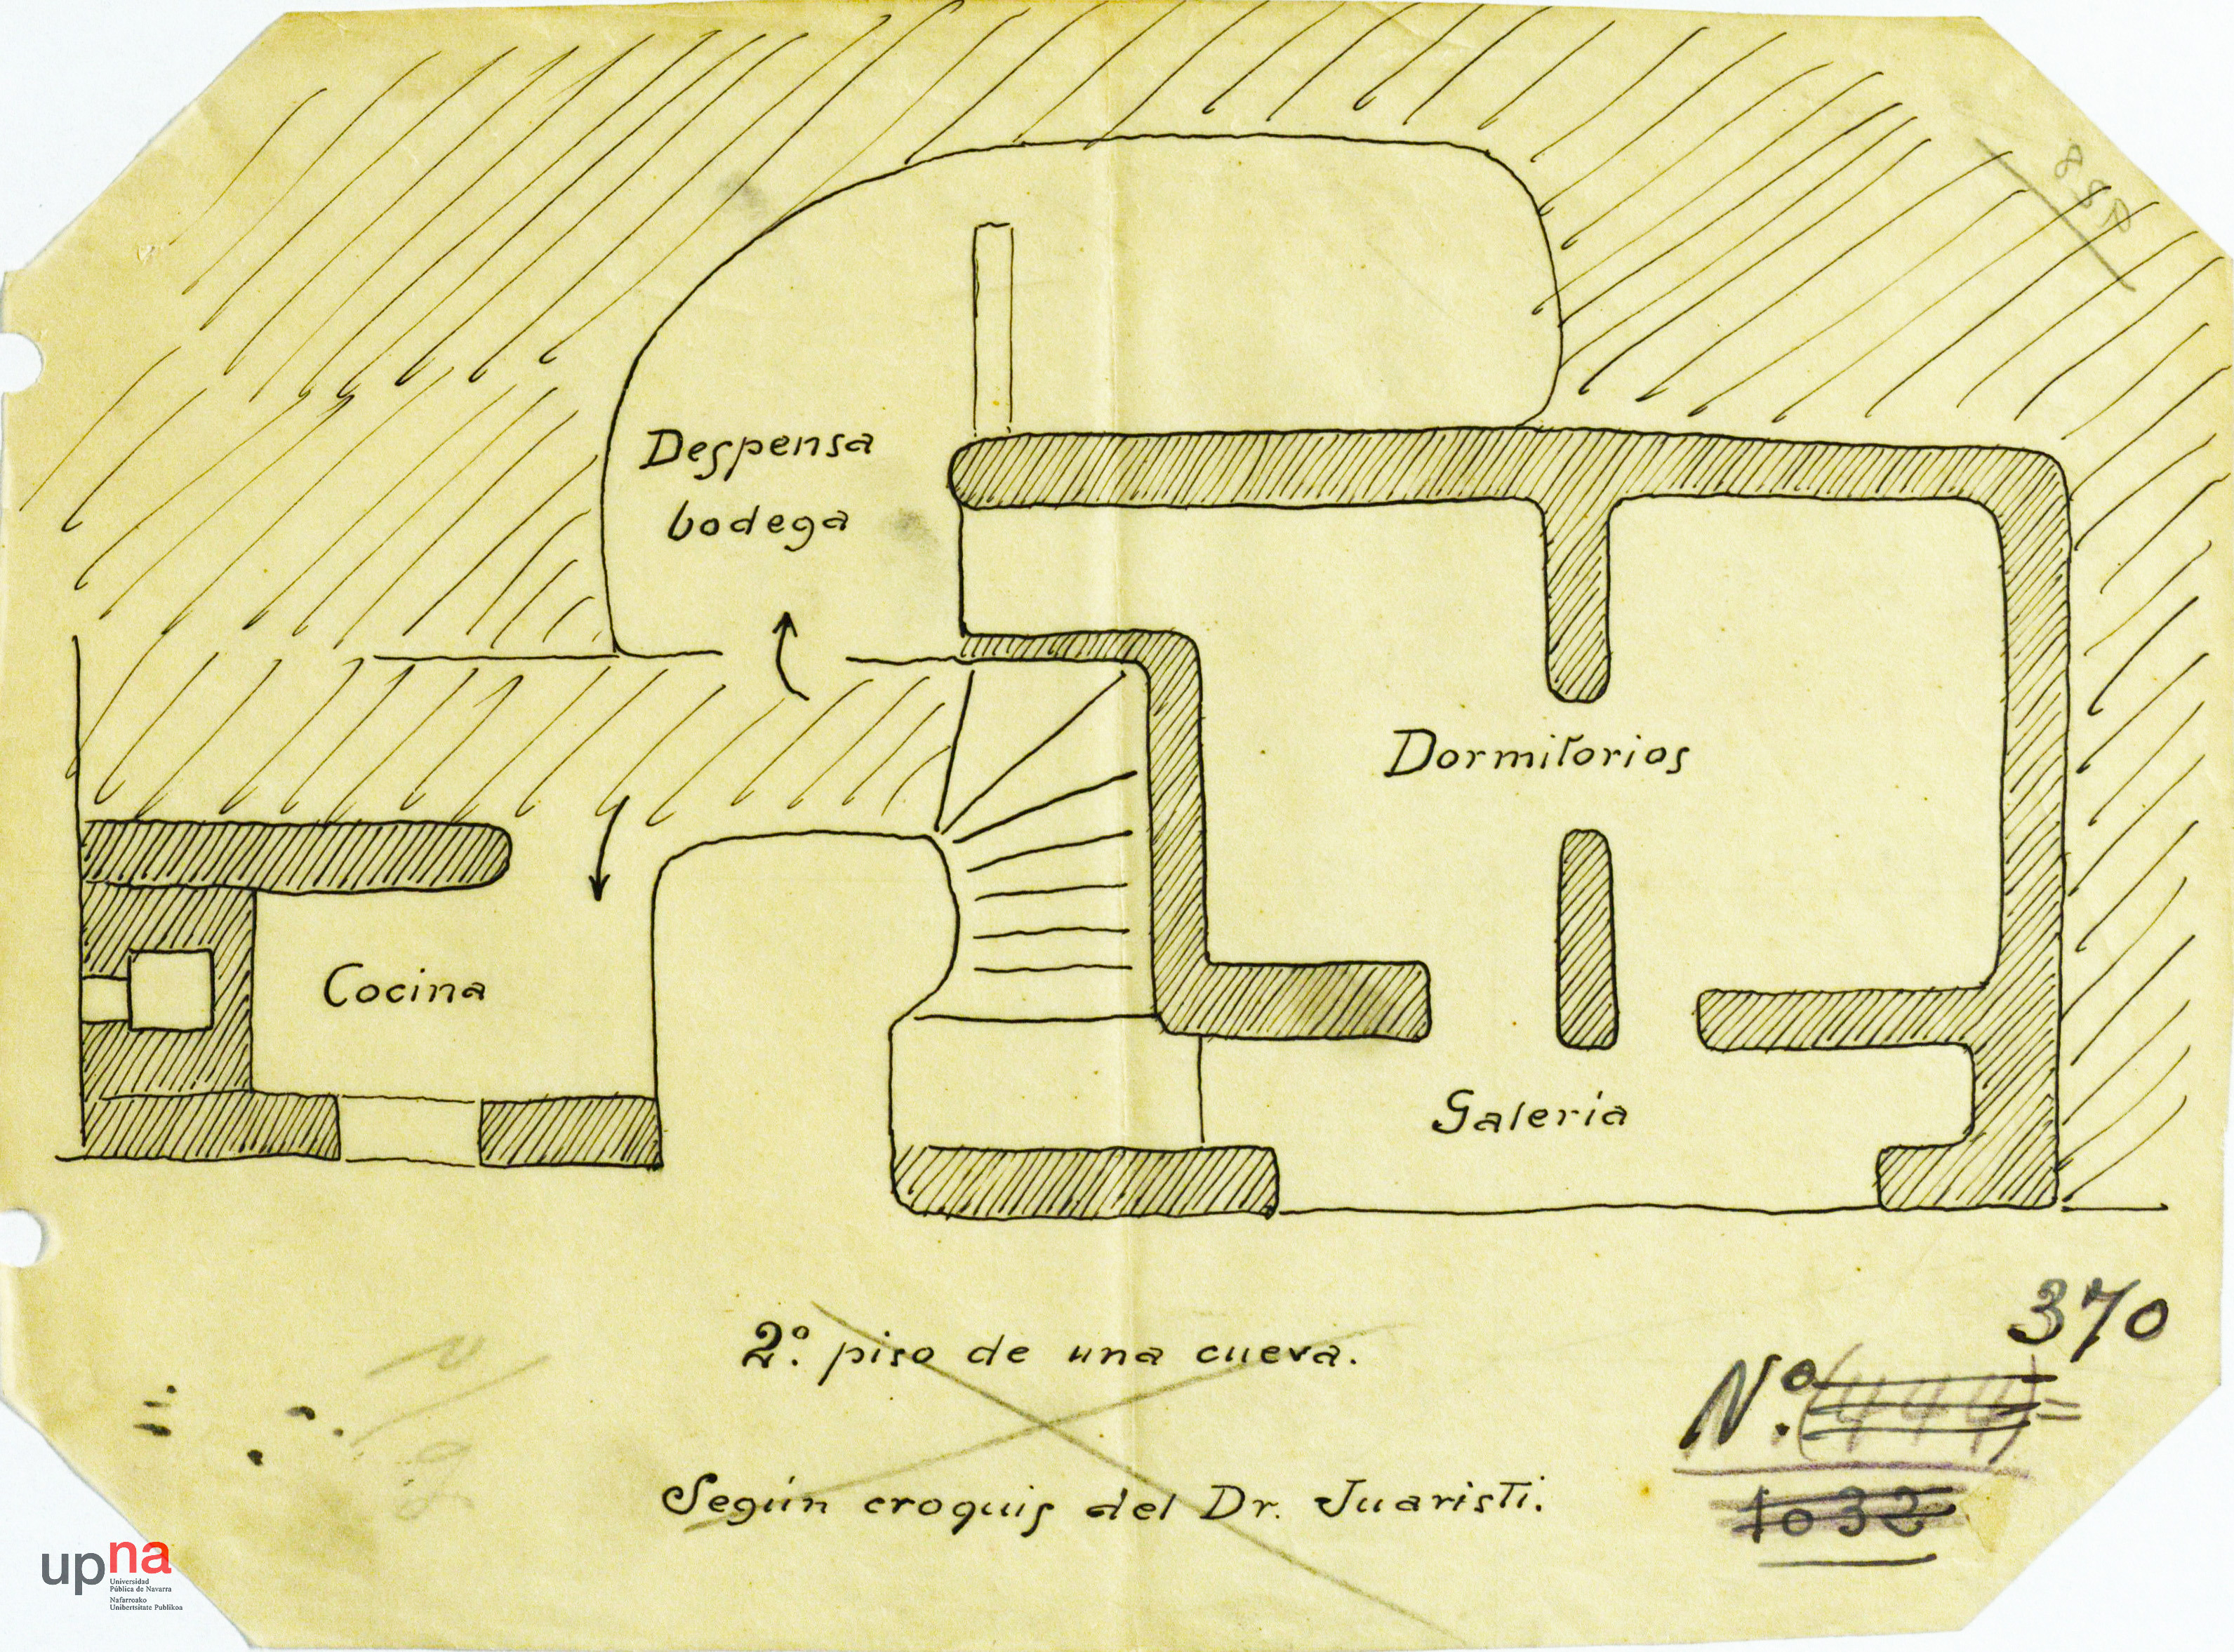 Despensa
bodega
Dormitorios
Cocina
Galeria
2º. piso de una cueva.
Según croquis del Dr. Juaristi.
370
Nº. (444)=
1032
upna
Universidad
Pública de Navarra
Nafarroako
Unibertsitate Publikoa